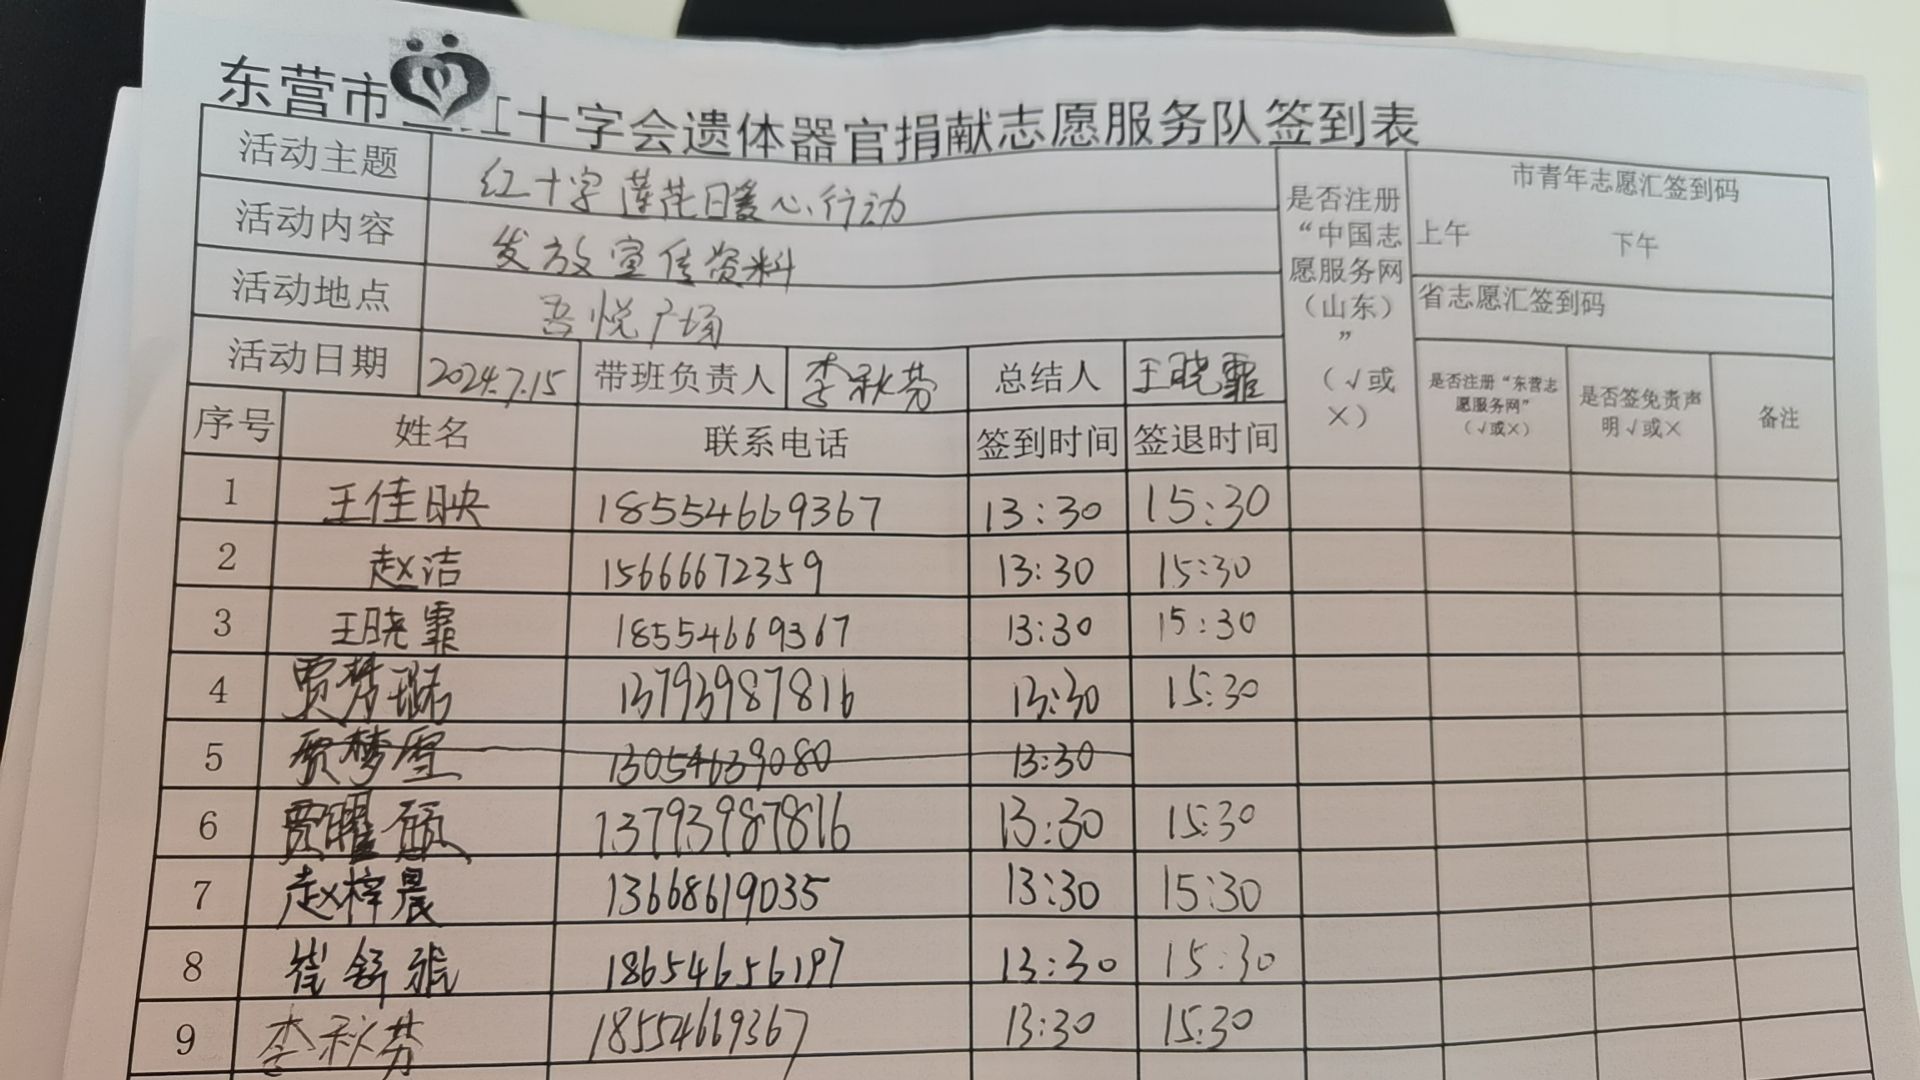 东营市 红十字会遗体器官捐献志愿服务队签到表
活动主题 红十字莲花日暖心行动
活动内容 发放宣传资料
活动地点 吾悦广场
活动日期 2024.7.15 带班负责人 李秋芬 总结人 王晓霏
是否注册“中国志愿服务网（山东）”（√或×）
市青年志愿汇签到码
上午 下午
省志愿汇签到码
是否注册“东营志愿服务网”（√或×） 是否签免责声明√或× 备注
序号 姓名 联系电话 签到时间 签退时间
1 王佳映 18554669367 13:30 15:30
2 赵洁 15666672359 13:30 15:30
3 王晓霏 18554669367 13:30 15:30
4 贾梦璐 13793987816 13:30 15:30
5 贾梦雪 13054639080 13:30
6 贾曜硕 13793987816 13:30 15:30
7 赵梓晨 13668619035 13:30 15:30
8 崔舒雅 18654656197 13:30 15:30
9 李秋芬 18554669367 13:30 15:30